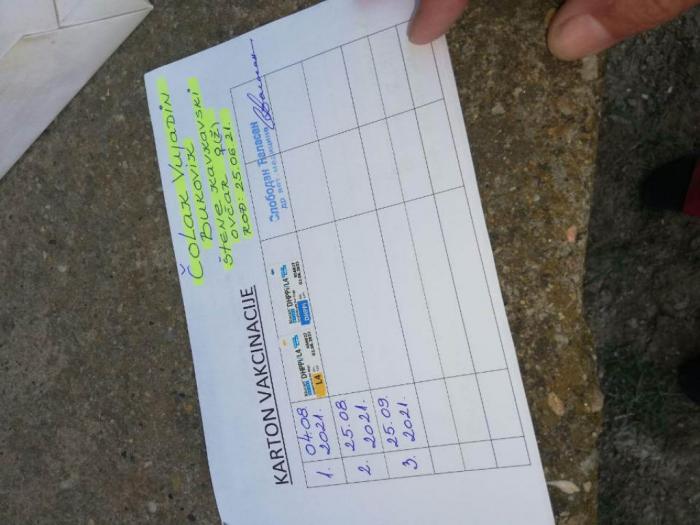 ČOLAK VUJADIN
BUKOVIK
ŠTENE KAVKAVSKI
OVČAR
ROĐ: 25.06 21.
KARTON VAKCINACIJE
1. 04.08
2021.
DHPPi/L4
L4
DHPPi/L4
DHPPi
Слободан
др вет. медицине
2. 25.08
2021.
3. 25.09.
2021.